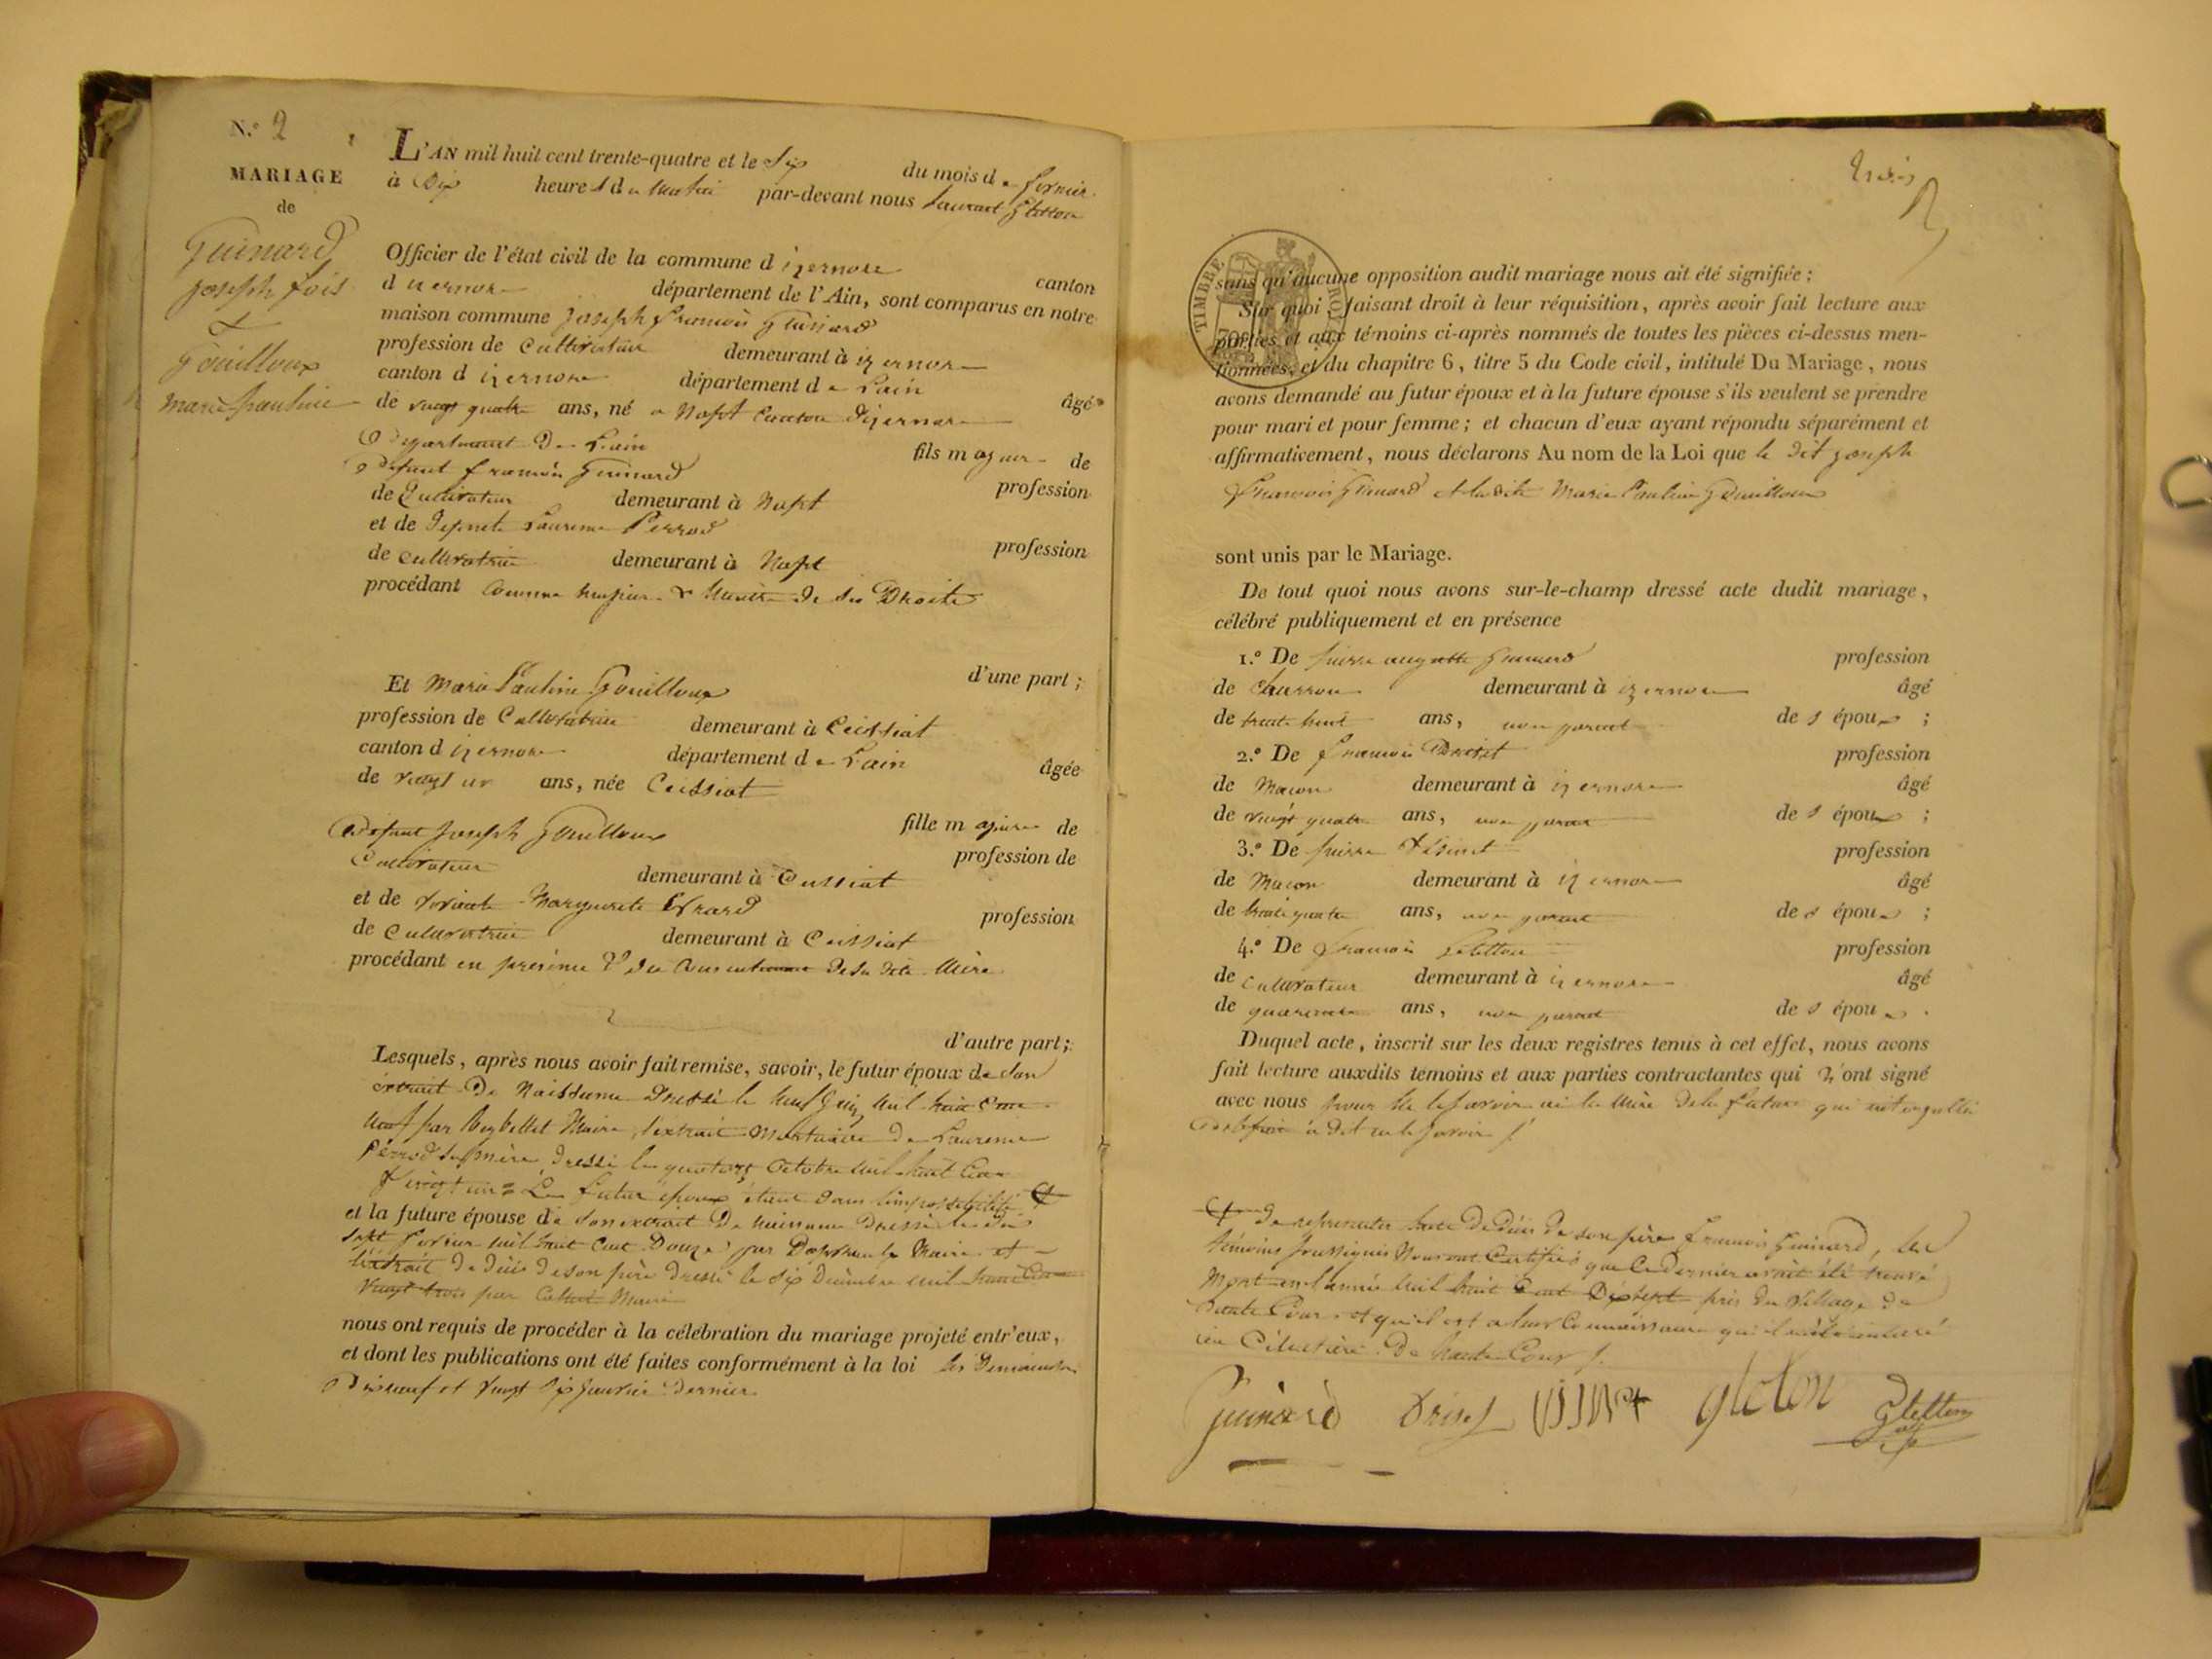 N.º 2
MARIAGE
de
Guinard
joseph fois
&
Gouilloux
marie pauline
L'AN mil huit cent trente-quatre et le six du mois de fevrier
à dix heures du matin par-devant nous Laurent Gletton
Officier de l'état civil de la commune d izernore canton
d izernore département de l'Ain, sont comparus en notre
maison commune joseph françois Guinard
profession de Cultivateur demeurant à izernore
canton d izernore département de Lain âgé
de vingt quatre ans, né a Napt Canton dizernore
Departement De Lain fils majeur de
Défunt françois Guinard profession
de Cultivateur demeurant à Napt
et de Defunte Laurence Perrod profession
de cultivatrice demeurant à Napt
procédant comme majeur & Maitre de ses Droits
d'une part ;
Et Marie Pauline Gouilloux
profession de Cultivatrice demeurant à Ceissiat
canton d izernore département de Lain âgée
de vingt un ans, née Ceissiat
fille majeure de
Défunt joseph Gouilloux profession de
Cultivateur demeurant à Ceissiat
et de vivante Marguerite Evrard profession
de Cultivatrice demeurant à Ceissiat
procédant en presence & du Consentement de sa dite Mère
d'autre part ;
Lesquels, après nous avoir fait remise, savoir, le futur époux de son
extrait De Naissance Dressé le neuf juin mil huit Cent
neuf par Maire, l'extrait Mortuaire De Laurence
Perrod sa mère dressé le quatorze Octobre mil huit Cent
Vingt un = Le futur époux étant dans l'impossibilité
et la future épouse de son extrait De Naissance Dressé le dix
sept fevrier mil huit Cent Douze par Maire et
l'extrait de décès de son père dressé le six Décembre mil huit Cent
vingt trois par Maire
nous ont requis de procéder à la célébration du mariage projeté entr'eux,
et dont les publications ont été faites conformément à la loi les Dimanches
Dixneuf et vingt six janvier Dernier
trois
TIMBRE ROYAL
sans qu'aucune opposition audit mariage nous ait été signifiée ;
Sur quoi, faisant droit à leur réquisition, après avoir fait lecture aux
parties et aux témoins ci-après nommés de toutes les pièces ci-dessus men-
tionnées, et du chapitre 6, titre 5 du Code civil, intitulé Du Mariage, nous
avons demandé au futur époux et à la future épouse s'ils veulent se prendre
pour mari et pour femme ; et chacun d'eux ayant répondu séparément et
affirmativement, nous déclarons Au nom de la Loi que le dit joseph
François Guinard et ladite Marie Pauline Gouilloux
sont unis par le Mariage.
De tout quoi nous avons sur-le-champ dressé acte dudit mariage,
célébré publiquement et en présence
1.º De pierre auguste Guinard profession
de Charron demeurant à izernore âgé
de trente huit ans, non parent des époux ;
2.º De françois profession
de Macon demeurant à izernore âgé
de vingt quatre ans, non parent des époux ;
3.º De pierre profession
de Macon demeurant à izernore âgé
de trente quatre ans, non parent des époux ;
4.º De françois Gletton profession
de Cultivateur demeurant à izernore âgé
de quarante ans, non parent des époux .
Duquel acte, inscrit sur les deux registres tenus à cet effet, nous avons
fait lecture auxdits temoins et aux parties contractantes qui n'ont signé
avec nous pour ne le savoir ni la Mère de la future qui interpellée
de le faire a dit ne le savoir /.
De représenter lacte De décès de son père françois Guinard, les
témoins soussignés Nous ont Certifiés que Ce dernier avoit été trouvé
Mort en l'année Mil huit Cent Dixsept près du village de
haute Cour et qu'il est a leur Connaissance qu'il a été inhumé
au Cimetière De haute Cour /.
Guinard gleton Gletton